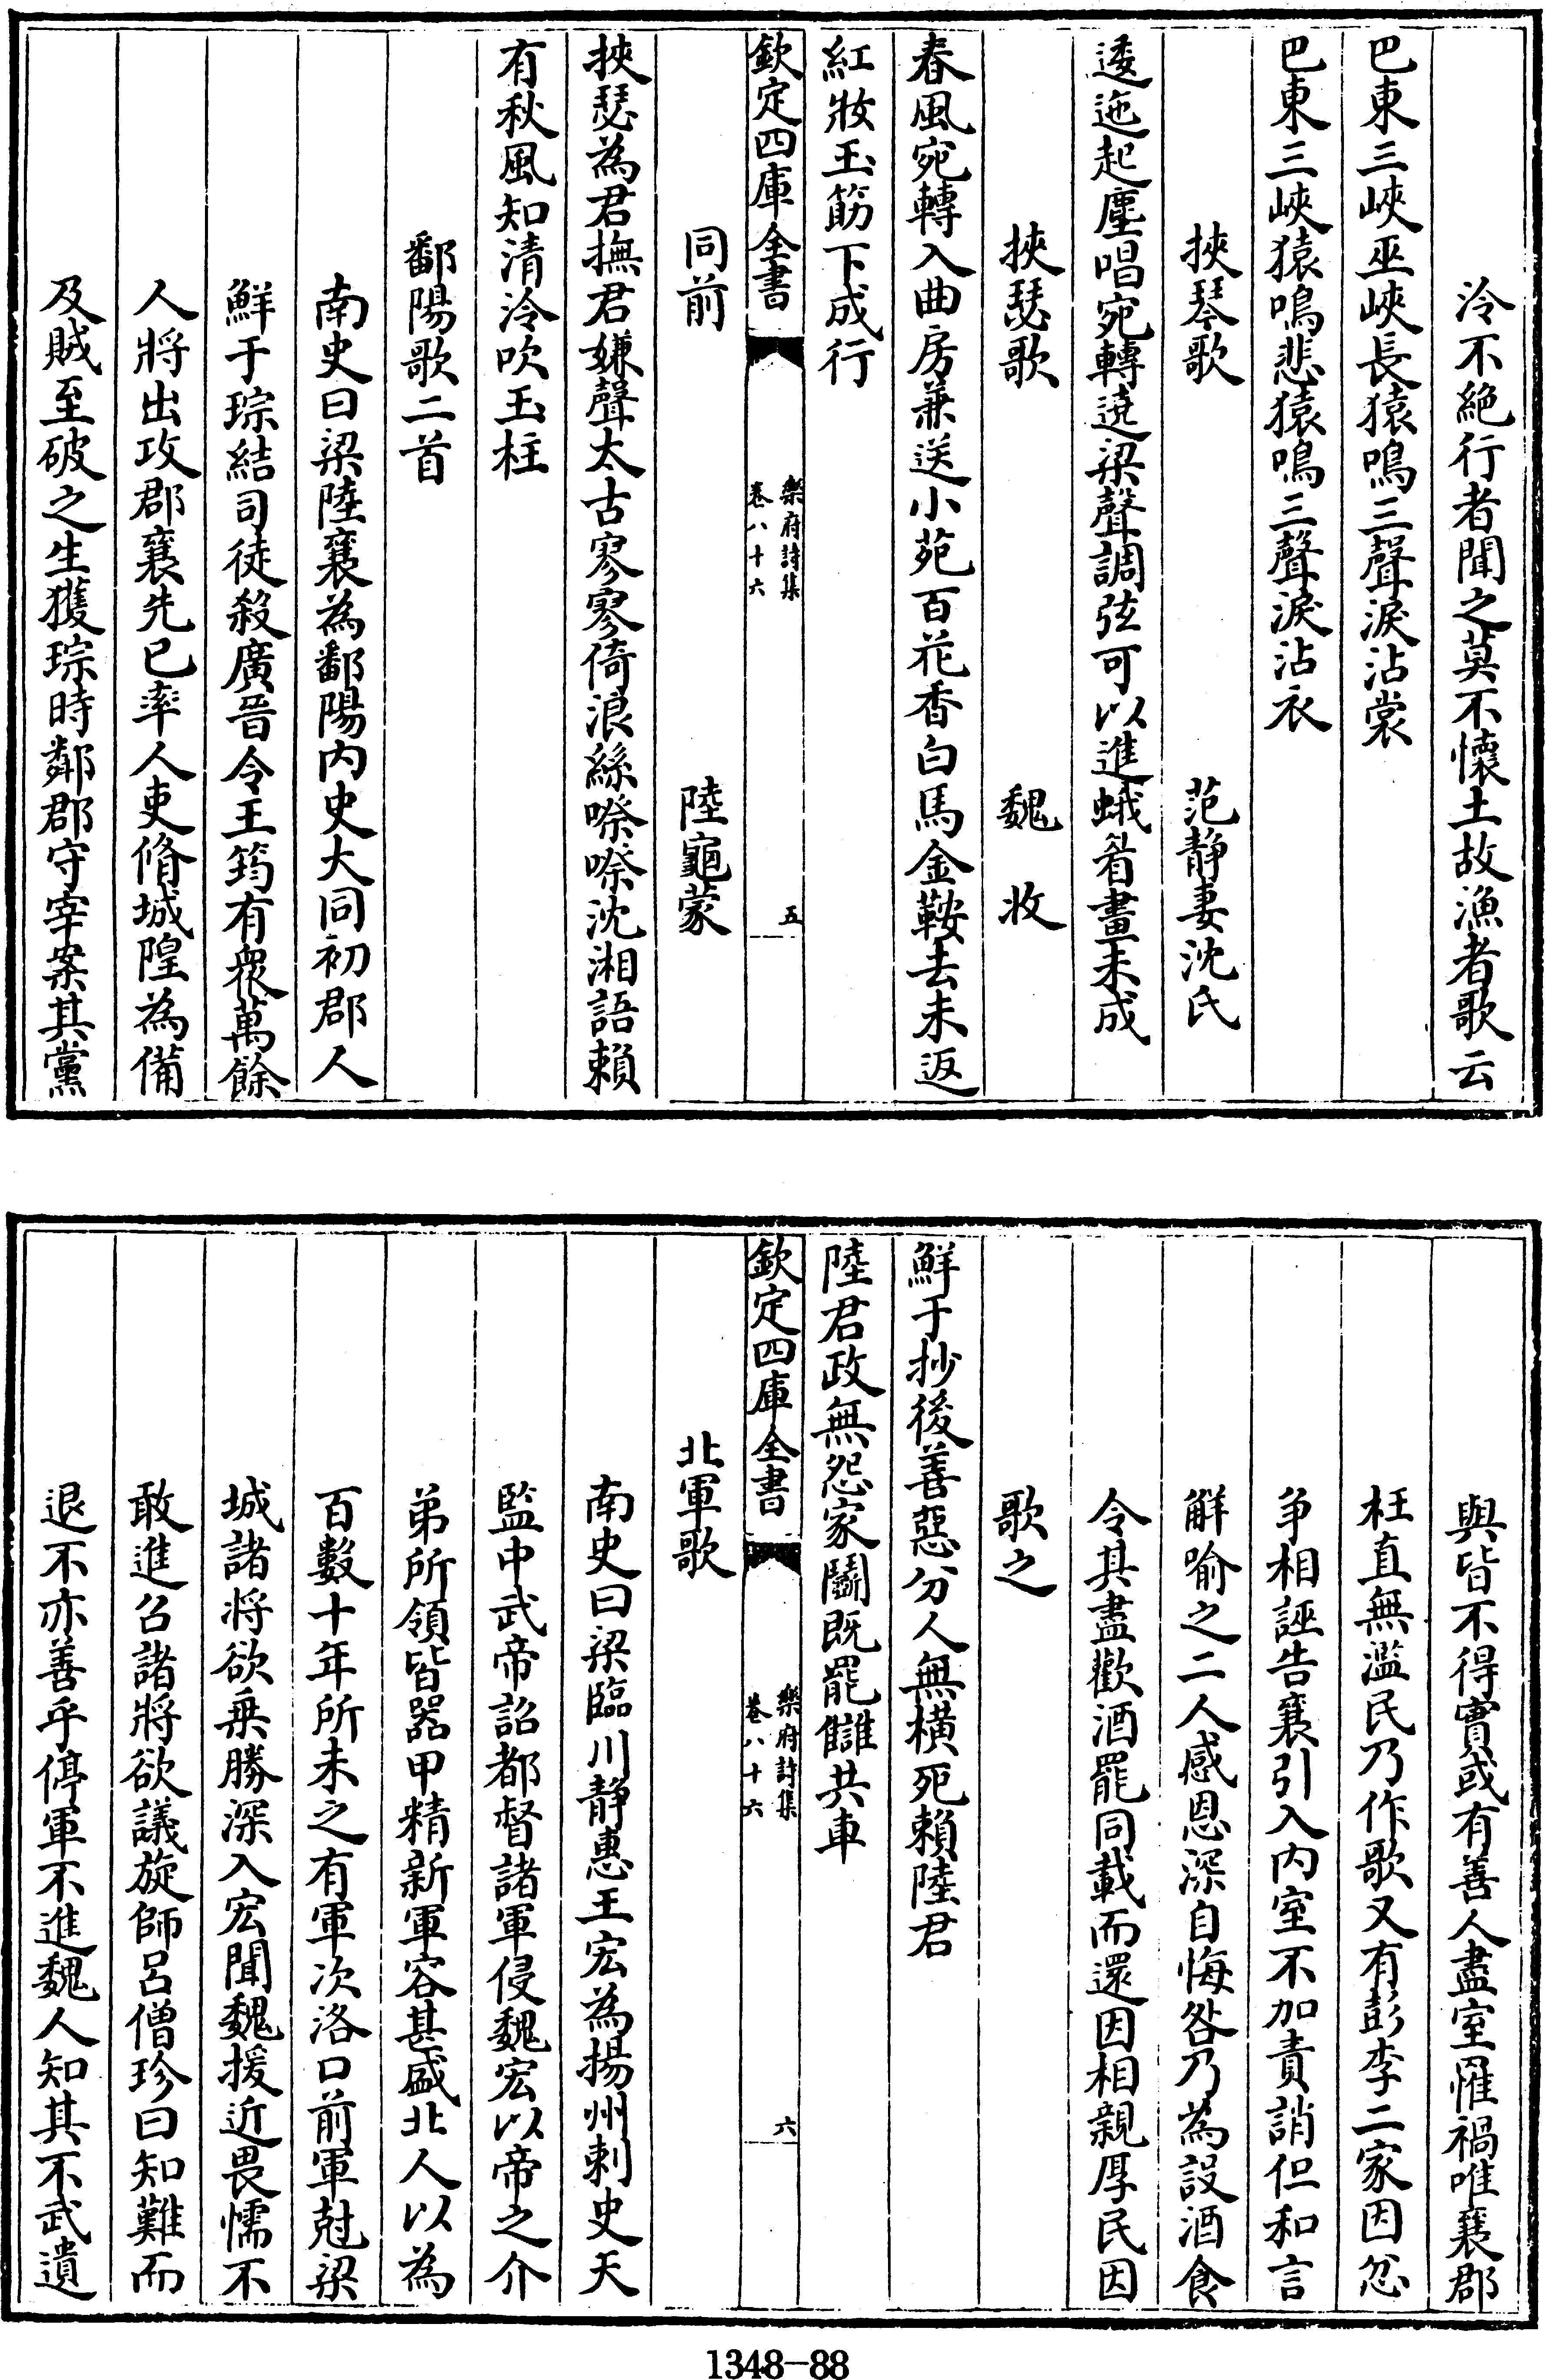 泠不絶行者聞之莫不懐土故漁者歌云
巴東三峽巫峽長猿鳴三聲淚沾裳
巴東三峽猿鳴悲猿鳴三聲淚沾衣
挾琴歌　范靜妻沈氏
逶迤起塵唱宛轉遶梁聲調弦可以進蛾眉畫未成
挾瑟歌　魏收
春風宛轉入曲房兼送小苑百花香白馬金鞍去未返
紅妝玉筯下成行
欽定四庫全書　樂府詩集卷八十六　五
同前　陸龜蒙
挾瑟為君撫君嫌聲太古寥寥倚浪絲喙喙沈湘語賴
有秋風知清泠吹玉柱
鄱陽歌二首
南史曰梁陸襄為鄱陽内史大同初郡人
鮮于琮結司徒殺廣晉令王筠有衆萬餘
人將出攻郡襄先已率人吏脩城隍為備
及賊至破之生獲琮時鄰郡守宰案其黨
與皆不得實或有善人盡室罹禍唯襄郡
枉直無濫民乃作歌又有彭李二家因忿
爭相誣告襄引入内室不加責誚但和言
解喻之二人感恩深自悔咎乃為設酒食
令其盡歡酒罷同載而還因相親厚民因
歌之
鮮于抄後善惡分人無横死賴陸君
陸君政無怨家鬭既罷讎共車
欽定四庫全書　樂府詩集卷八十六　六
北軍歌
南史曰梁臨川静惠王宏為揚州刺史天
監中武帝詔都督諸軍侵魏宏以帝之介
弟所領皆器甲精新軍容甚盛北人以為
百數十年所未之有軍次洛口前軍尅梁
城諸將欲乗勝深入宏聞魏援近畏懦不
敢進召諸將欲議旋師呂僧珍曰知難而
退不亦善乎停軍不進魏人知其不武遺
1348-88